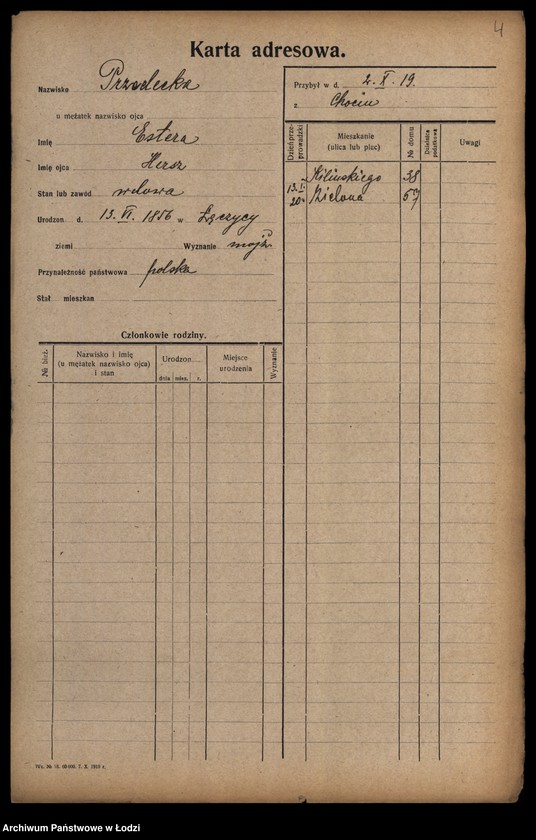 4
Karta adresowa.
Nazwisko Przedecka
u mężatek nazwisko ojca
Imię Estera
Imię ojca Hersz
Stan lub zawód wdowa
Urodzon d. 13. VI. 1856 w Łęczycy
ziemi Wyznanie mojż
Przynależność państwowa polska
Stał mieszkan
Przybył w d. 2. X. 19.
z Chocin
Dzień przeprowadzki Mieszkanie (ulica lub plac) № domu Dzielnica podatkowa Uwagi
Kilińskiego 38
13.I. 20 Zielona 57
Członkowie rodziny.
№ bież. Nazwisko i imię (u mężatek nazwisko ojca) i stan Urodzon dnia mies. r. Miejsce urodzenia Wyznanie
Archiwum Państwowe w Łodzi